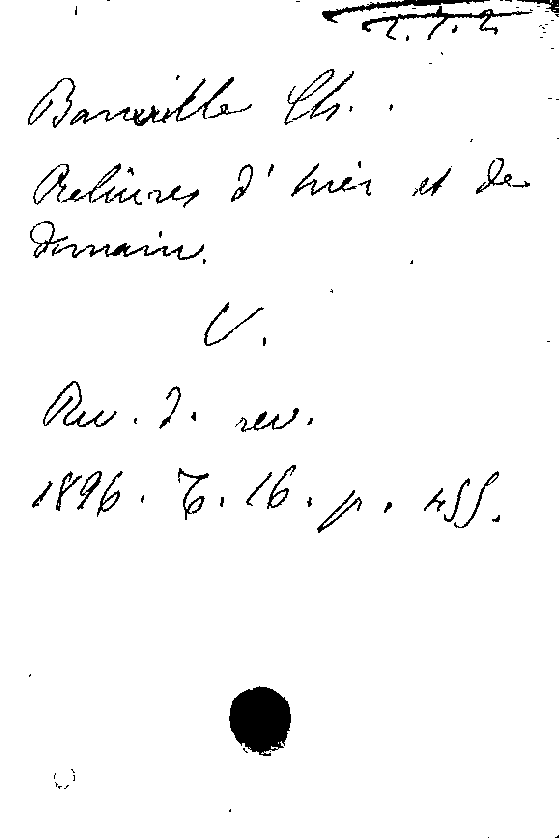 Banville Ch.
Reliures d'hier et de
demain.
V.
Rev. d. rev.
1896. T. 16. p. 455.